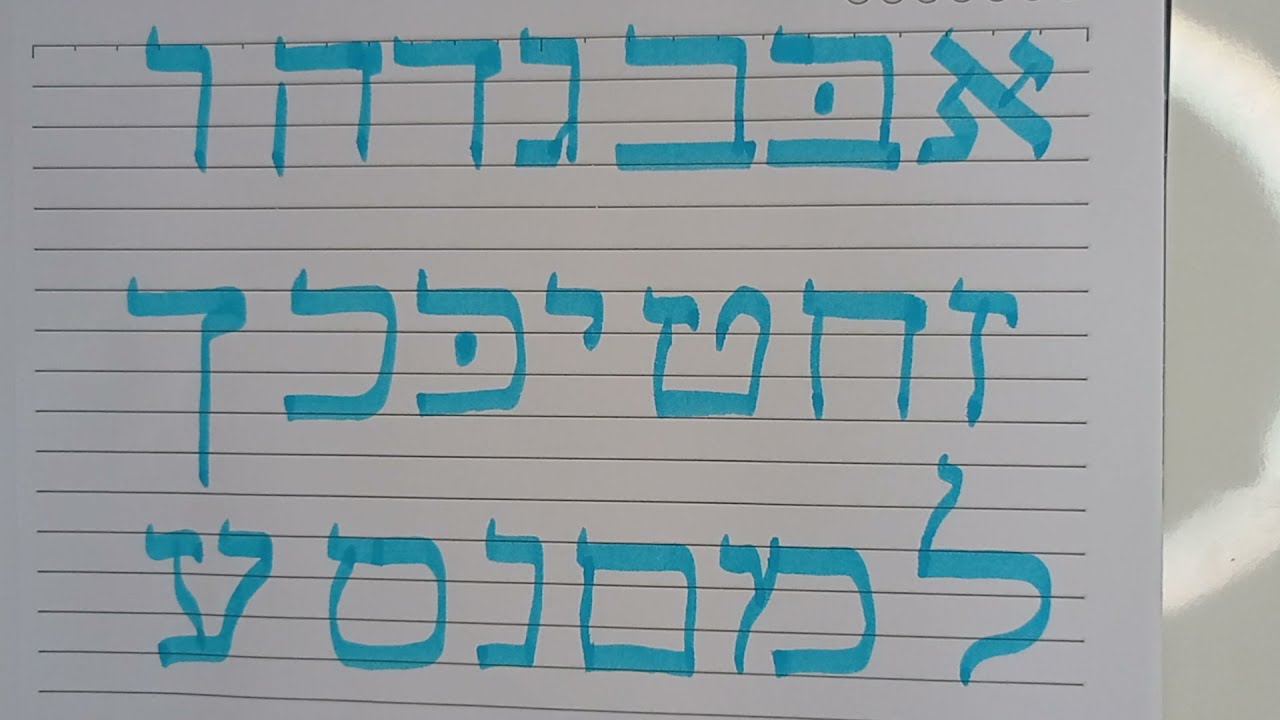 אבּבגדהו
זחטיכּכך
למםנסע